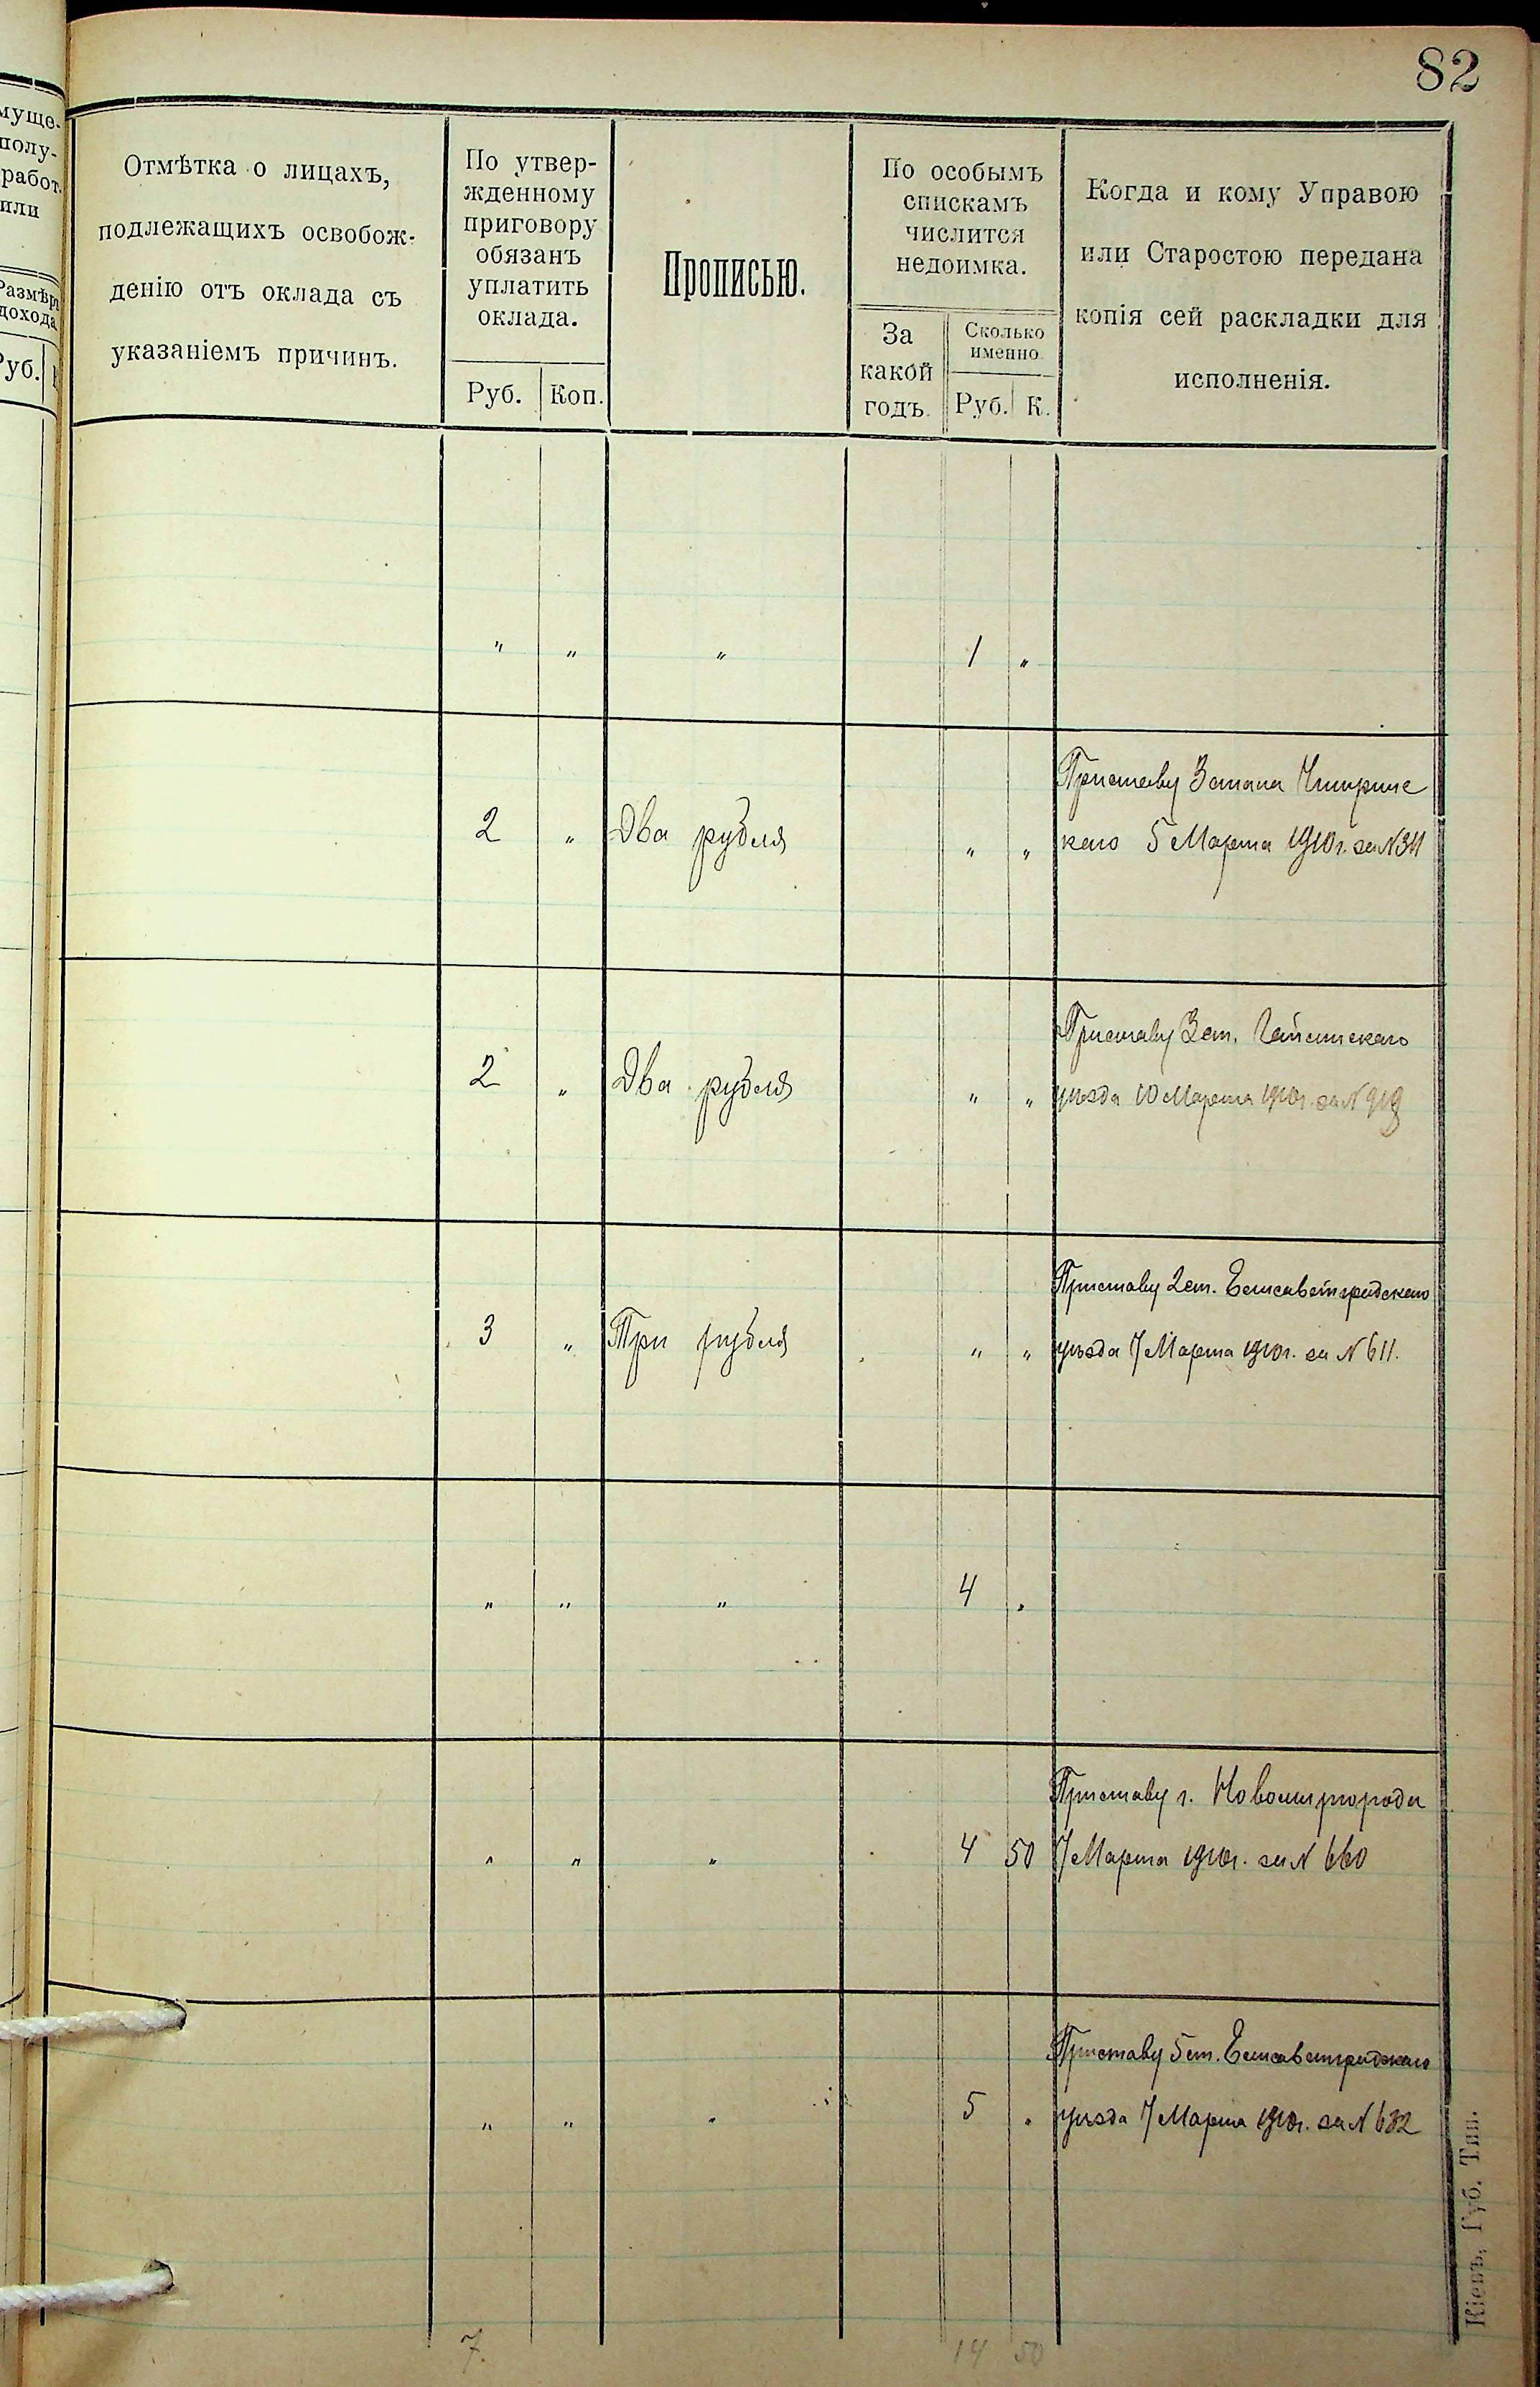 82
муще-
полу-
работ.
или
Размѣръ
дохода
Руб.
Отмѣтка о лицахъ,
подлежащихъ освобож-
денію отъ оклада съ
указаніемъ причинъ.
По утвер-
жденному
приговору
обязанъ
уплатить
оклада.
Руб. Коп.
Прописью.
По особымъ
спискамъ
числится
недоимка.
За
какой
годъ.
Сколько
именно
Руб. К.
Когда и кому Управою
или Старостою передана
копія сей раскладки для
исполненія.
" " " 1 "
Приставу 3 стана Чигиринс
2 " Два рубля " " каго 5 Марта 1910 г. за N 311
Приставу 3 ст. Гайсинскаго
2 " Два рубля " " уѣзда 10 Марта 1910 г. за N 919
Приставу 2 ст. Елисаветградскаго
3 " Три рубля " " уѣзда 7 Марта 1910 г. за N 611.
" " " 4 "
Приставу г. Новомиргорода
" " " 4 50 7 Марта 1910 г. за N 660
Приставу 5 ст. Елисаветградскаго
" " " 5 " уѣзда 7 Марта 1910 г. за N 632
7. 14 50
Кіевъ, Губ. Тип.